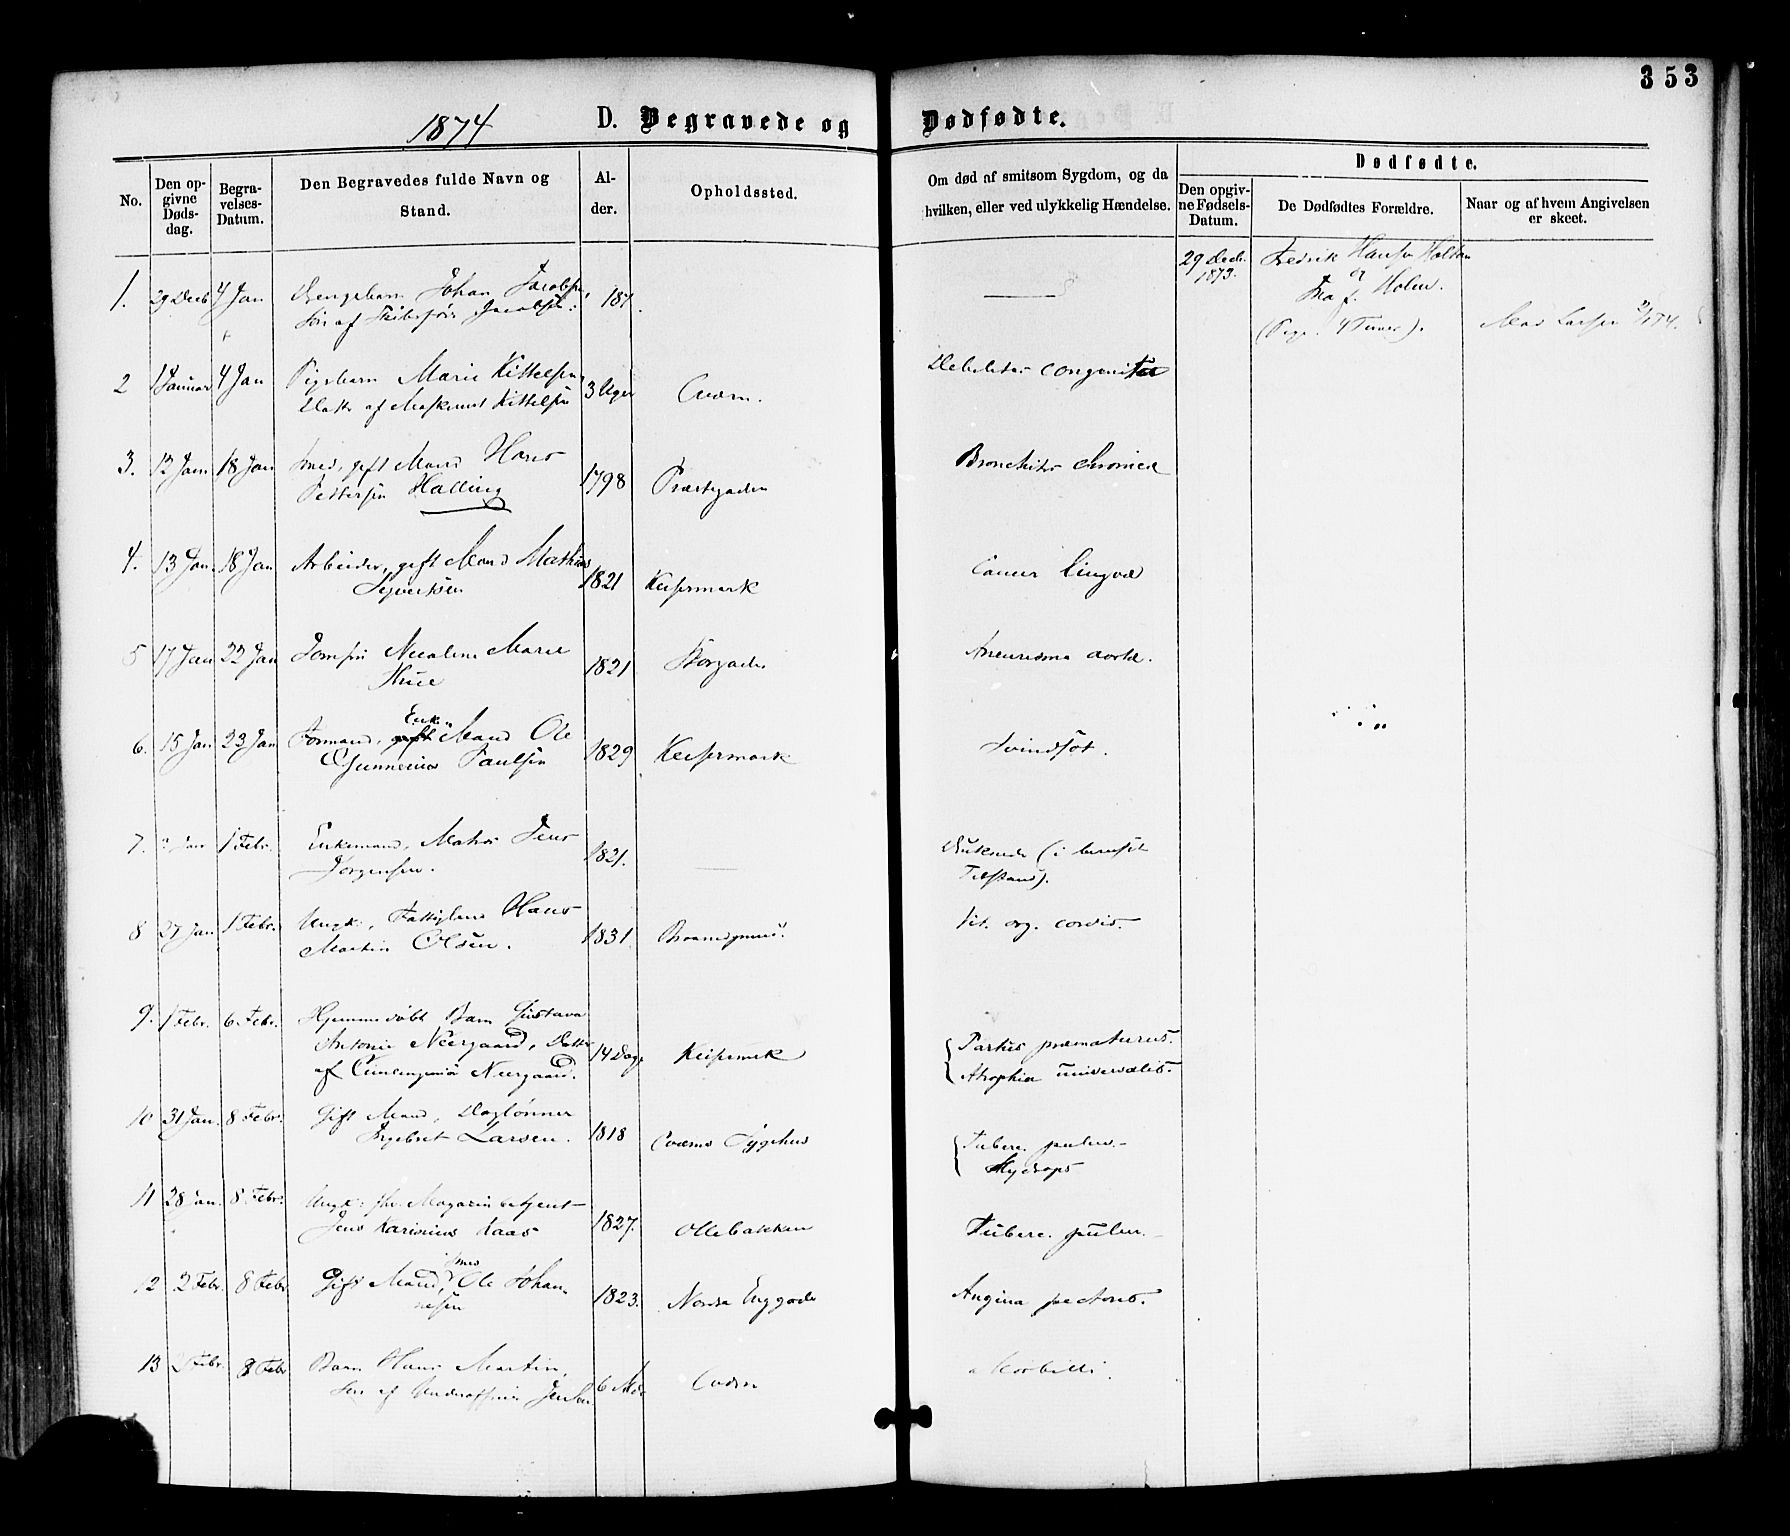 353
1874 D. Begravede og Dødfødte.
No.
Den opgivne Dødsdag.
Begravelses-Datum.
Den Begravedes fulde Navn og Stand.
Alder.
Opholdssted.
Om død af smitsom Sygdom, og da hvilken, eller ved ulykkelig Hændelse.
Dødfødte.
Den opgivne Fødsels-Datum.
De Dødfødtes Forældre.
Naar og af hvem Angivelsen er skeet.
29 Decb. 1873. Fredrik Hansen
og
Holm.
1. 29 Decb 4 Jan Drengebarn Johan Jacobsen
Søn af Jacobsen
2 1 Januar 4 Jan Pigebarn Marie Kittelsen 3 Uger Debilitas congenita
Datter af Kittelsen
3. 12 Jan 18 Jan Smed, gift Mand Hans 1798 Præstegaden Bronchitis chronica
Pettersen Halling
4. 13 Jan 18 Jan Arbeider, gift Mand Mathias 1821 Keisermark Cancer lingvæ
Syvertsen
5 17 Jan 22 Jan Jomfru Nicoline Marie 1821 Aneurisma aortæ.
6. 15 Jan 23 Jan Formand, Enke Mand Ole 1829 Keisermark Svindsot.
Gunnerius Paulsen
7. Jan 1 Febr. Enkemand, Matros Jens 1821. Druknede (i beruset
Jørgensen. Tilstand).
8 27 Jan 1 Febr. Ungk. Fattiglem Hans 1831. vit. org. cordis.
Martin Olsen.
9. 1 Febr. 6 Febr. Hjemmedøbt Barn Gustava
Antonie Neergaard, Datter 14 Dage Keisermk Partus præmaturus.
af Neergaard. Atrophia universalis.
10 31 Jan. 8 Febr. Gift Mand, Daglønner 1818 Sygehus Tuberc. pulm.
Ingebret Larsen. Hydrops
11 28 Jan. 8 Febr. Ungk. fhv. Magazinbetjent 1827. Ollebakken Tuberc. pulm.
Jens Karinius Kaas
12 2 Febr 8 Febr Gift Mand, Smed Ole Johan- 1823. Nordre Enggade Angina pectoris.
nesen
13 2 Febr. 8 Febr Barn Hans Martin, Morbilli.
Søn af Underofficer Jensen